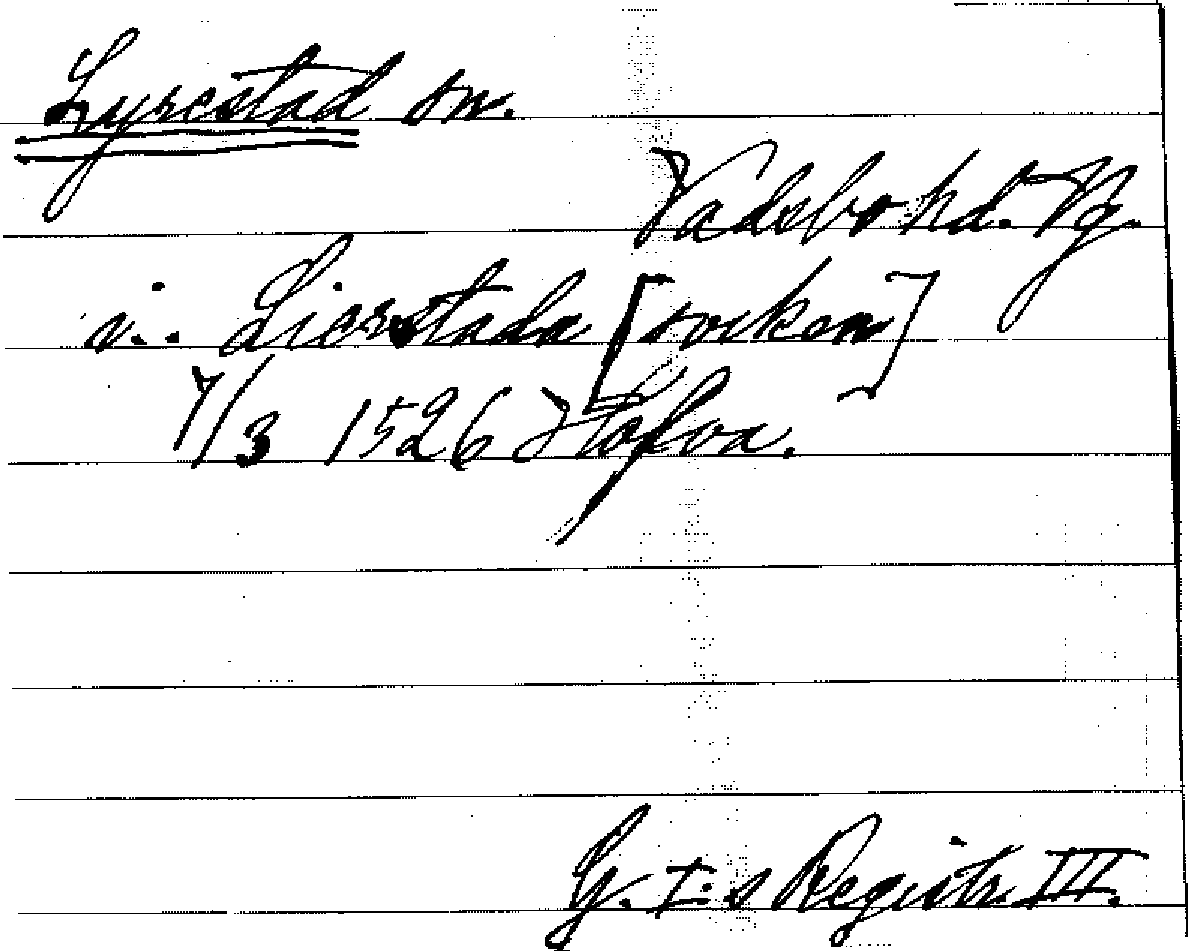 Lyrestad sn.
Vadsbo hd. Vg.
i.. Lierstada [socken]
7/3 1526 Hofva.
G. I:s Registr. III.